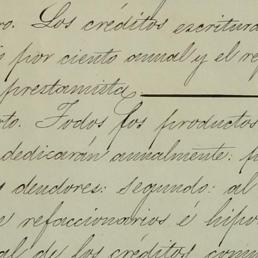 ro. Los créditos escritura
por ciento anual y el re
prestamista
rto. Todos los productos
dedicarán anualmente: p
deudores: Segundo: al
e refaccionarios é hipo
al de los créditos comu